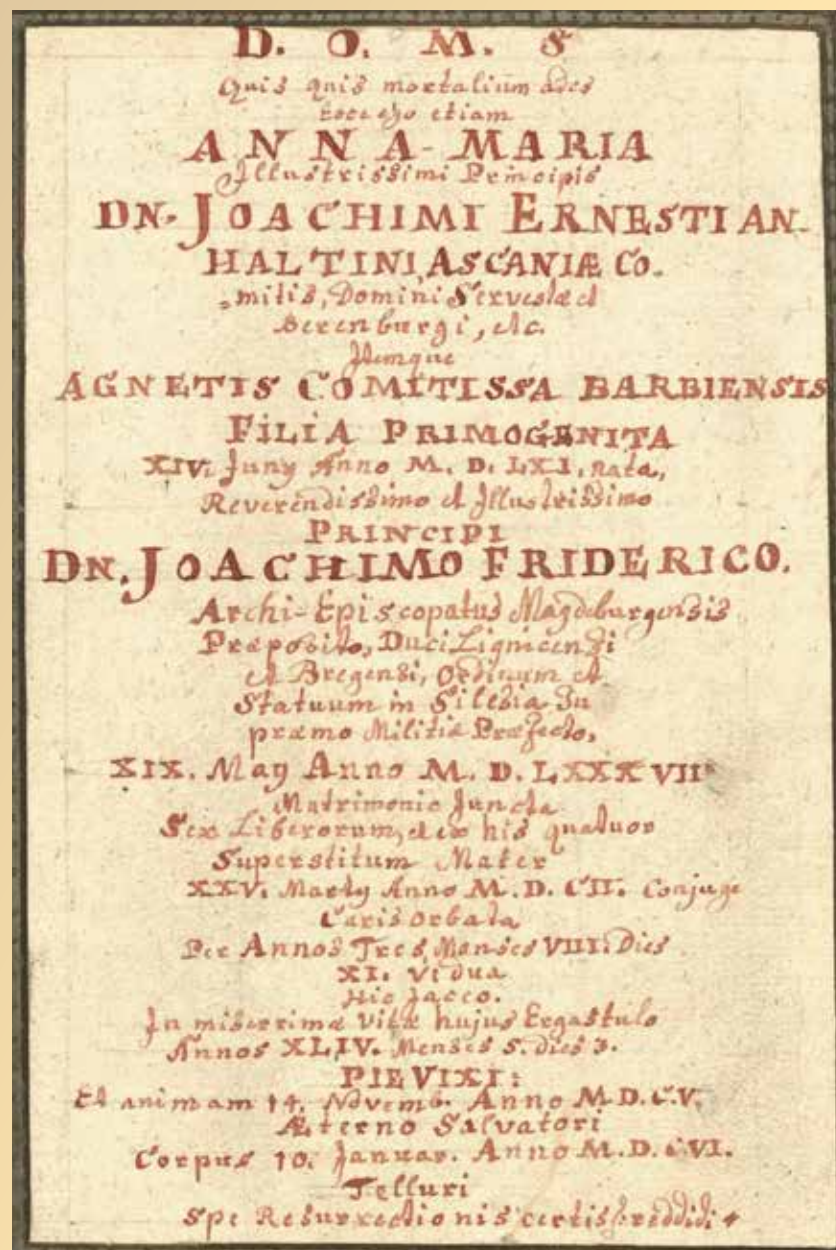 D. O. M. S
Quis quis mortalium ades
ecce ego etiam
ANNA-MARIA
Illustrissimi Principis
DN. JOACHIMI ERNESTI AN-
HALTINI, ASCANIÆ CO.
mitis, Domini Servestæ et
Berenburgi, etc.
Itemque
AGNETIS COMITISSA BARBIENSIS
FILIA PRIMOGENITA
XIV. Juny Anno M. D. LXI. nata,
Reverendissimo et Illustrissimo
PRINCIPI
DN. JOACHIMO FRIDERICO.
Archi-Episcopatus Magdeburgensis
Præposito, Duci Lignicensi
et Bregensi, Ordinum et
Statuum in Silesia Su
præmo Militiæ Præfecto,
XIX. May Anno M. D. LXXXVII
Matrimonio Juncta
Sex Liberorum, et ex his quatuor
Superstitum Mater
XXV. Marty Anno M. D. CII. Conjuge
Caris orbata
Per Annos Tres, Menses VIII. Dies
XI. Vidua
Hic Jaceo.
In miserrimæ Vitæ hujus Ergastulo
Annos XLIV. Menses 5. dies 3.
PIE VIXI:
Et animam 14. Novemb. Anno M. D. C. V.
Æterno Salvatori
Corpus 10. Januar. Anno M. D. C. VI.
Telluri
Spe Resurrectionis reddidi